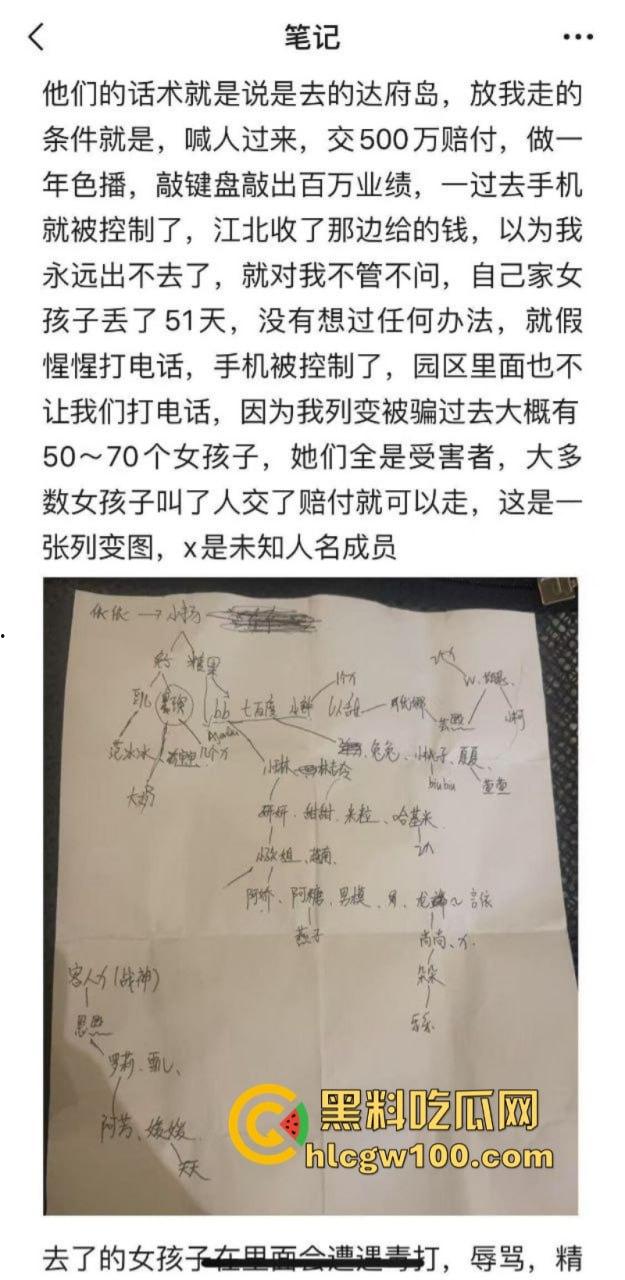 笔记
他们的话术就是说是去的达府岛，放我走的
条件就是，喊人过来，交500万赔付，做一
年色播，敲键盘敲出百万业绩，一过去手机
就被控制了，江北收了那边给的钱，以为我
永远出不去了，就对我不管不问，自己家女
孩子丢了51天，没有想过任何办法，就假
惺惺打电话，手机被控制了，园区里面也不
让我们打电话，因为我列变被骗过去大概有
50～70个女孩子，她们全是受害者，大多
数女孩子叫了人交了赔付就可以走，这是一
张列变图，x是未知人名成员
依依 → 小杨
糖果
bb 七百度 小鲜
范冰冰 几个x
兔兔、小桃子、夏夏
biubiu
小琳
妍妍、甜甜、米粒、哈基米
阿娇、阿糖、男模
燕子
尚尚、x.
朵朵
乐乐
客人x（战神）
罗莉、甄儿、
阿芳、媛媛
天天
黑料吃瓜网
hlcgw100.com
去了的女孩子在里面会遭遇毒打，辱骂，精